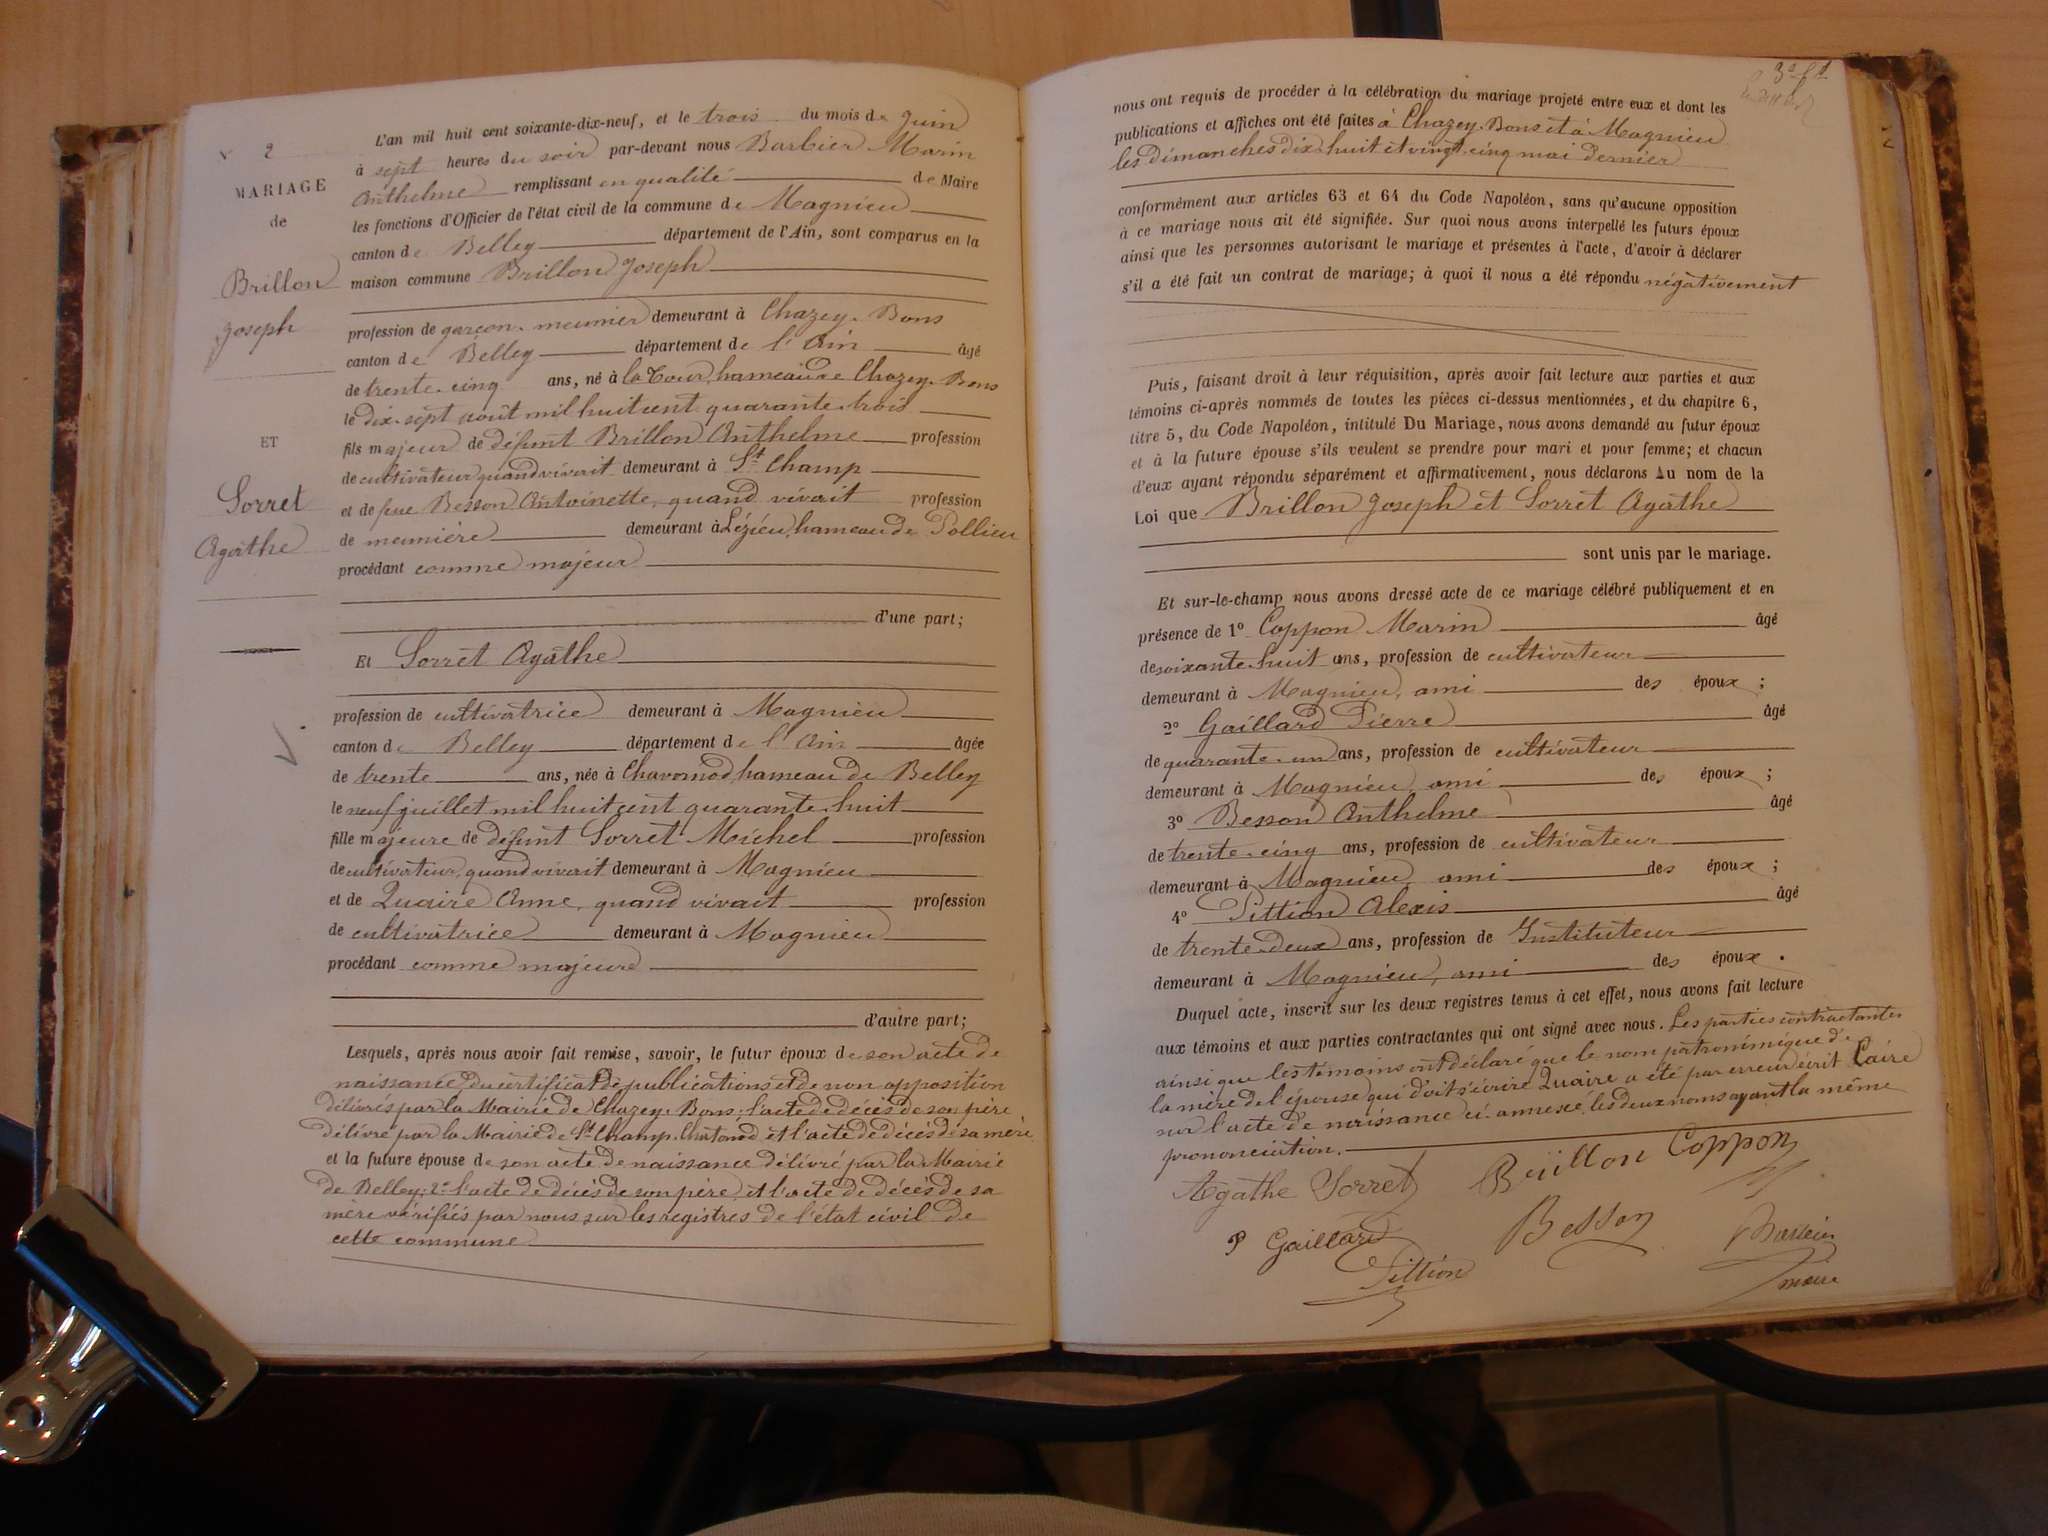 N° 2
MARIAGE
de
Brillon
Joseph
ET
Sorret
Agathe
L'an mil huit cent soixante-dix-neuf, et le trois du mois de Juin
à sept heures du soir par-devant nous Barbier Marin
Anthelme remplissant en qualité de Maire
les fonctions d'Officier de l'état civil de la commune de Magnieu
canton de Belley département de l'Ain, sont comparus en la
maison commune Brillon Joseph
profession de garçon-meunier demeurant à Chazey-Bons
canton de Belley département de l'Ain âgé
de trente-cinq ans, né à la Cour, hameau de Chazey-Bons
le dix-sept août mil huit cent quarante-trois
fils majeur de défunt Brillon Anthelme profession
de cultivateur quand vivait demeurant à St Champ
et de feue Besson Antoinette, quand vivait profession
de meunière demeurant à Lézieu, hameau de Pollieu
procédant comme majeur
d'une part;
Et Sorret Agathe
profession de cultivatrice demeurant à Magnieu
canton de Belley département de l'Ain âgée
de trente ans, née à Chavornod hameau de Belley
le neuf juillet mil huit cent quarante-huit
fille majeure de défunt Sorret Michel profession
de cultivateur, quand vivait demeurant à Magnieu
et de Quaire Anne, quand vivait profession
de cultivatrice demeurant à Magnieu
procédant comme majeure
d'autre part;
Lesquels, après nous avoir fait remise, savoir, le futur époux de son acte de
naissance, du certificat de publications et de non opposition
délivrés par la Mairie de Chazey-Bons; l'acte de décès de son père
délivré par la Mairie de St Champ-Chatonod et l'acte de décès de sa mère
et la future épouse de son acte de naissance délivré par la Mairie
de Belley; 2° l'acte de décès de son père, et l'acte de décès de sa
mère vérifiés par nous sur les registres de l'état civil de
cette commune
nous ont requis de procéder à la célébration du mariage projeté entre eux et dont les
publications et affiches ont été faites à Chazey-Bons et à Magnieu
les dimanches dix-huit et vingt-cinq mai dernier
conformément aux articles 63 et 64 du Code Napoléon, sans qu'aucune opposition
à ce mariage nous ait été signifiée. Sur quoi nous avons interpellé les futurs époux
ainsi que les personnes autorisant le mariage et présentes à l'acte, d'avoir à déclarer
s'il a été fait un contrat de mariage; à quoi il nous a été répondu négativement
Puis, faisant droit à leur réquisition, après avoir fait lecture aux parties et aux
témoins ci-après nommés de toutes les pièces ci-dessus mentionnées, et du chapitre 6,
titre 5, du Code Napoléon, intitulé Du Mariage, nous avons demandé au futur époux
et à la future épouse s'ils veulent se prendre pour mari et pour femme; et chacun
d'eux ayant répondu séparément et affirmativement, nous déclarons Au nom de la
Loi que Brillon Joseph et Sorret Agathe
sont unis par le mariage.
Et sur-le-champ nous avons dressé acte de ce mariage célébré publiquement et en
présence de 1° Coppon Marin âgé
de soixante-huit ans, profession de cultivateur
demeurant à Magnieu, ami des époux;
2° Gaillard Pierre âgé
de quarante-un ans, profession de cultivateur
demeurant à Magnieu, ami des époux;
3° Besson Anthelme âgé
de trente-cinq ans, profession de cultivateur
demeurant à Magnieu, ami des époux;
4° Pittion Alexis âgé
de trente-deux ans, profession de Instituteur
demeurant à Magnieu, ami des époux.
Duquel acte, inscrit sur les deux registres tenus à cet effet, nous avons fait lecture
aux témoins et aux parties contractantes qui ont signé avec nous. Les parties contractantes
ainsi que les témoins ont déclaré que le nom patronimique de
la mère de l'épouse qui doit s'écrire Quaire a été par erreur écrit Caire
sur l'acte de naissance ci-annexé, les deux noms ayant la même
prononciation.
Agathe Sorret Brillon Coppon
P Gaillard Besson
Pittion maire